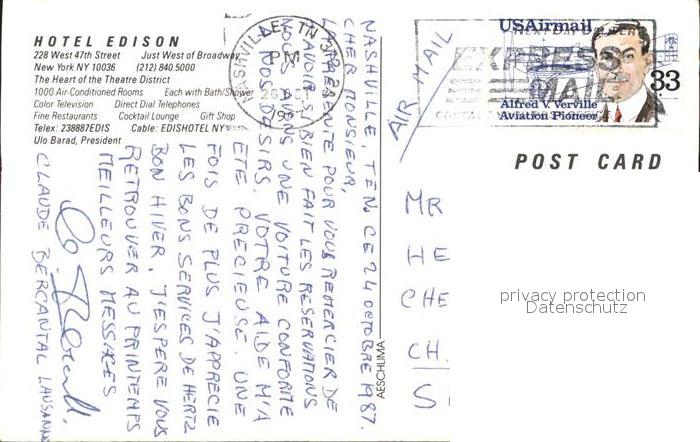 HOTEL EDISON
228 West 47th Street Just West of Broadway
New York NY 10036 (212) 840 5000
The Heart of the Theatre District
1000 Air-Conditioned Rooms Each with Bath/Shower
Color Television Direct Dial Telephones
Fine Restaurants Cocktail Lounge Gift Shop
Telex: 238887EDIS Cable: EDISHOTEL NY
Ulo Barad, President
NASHVILLE, TN
USAirmail
EXPRESS
MAIL
33
Alfred V. Verville
Aviation Pioneer
AIR MAIL
POST CARD
NASHVILLE, TEN, CE 24 OCTOBRE 1987.
CHER MONSIEUR,
LA PRESENTE POUR VOUS REMERCIER DE
AVOIR SI BIEN FAIT LES RESERVATIONS
NOUS AVONS UNE VOITURE CONFORTE
A NOS DESIRS. VOTRE AIDE M'A
ETE PRECIEUSE. UNE
FOIS DE PLUS J'APPRECIE
LES BONS SERVICES DE HERTZ
BON HIVER. J'ESPERE VOUS
RETROUVER AU PRINTEMPS
MEILLEURS MESSAGES
CLAUDE BERCANTAL LAUSANNE
AESCHLIMA
MR
HE
CHE
CH.
S
privacy protection
Datenschutz